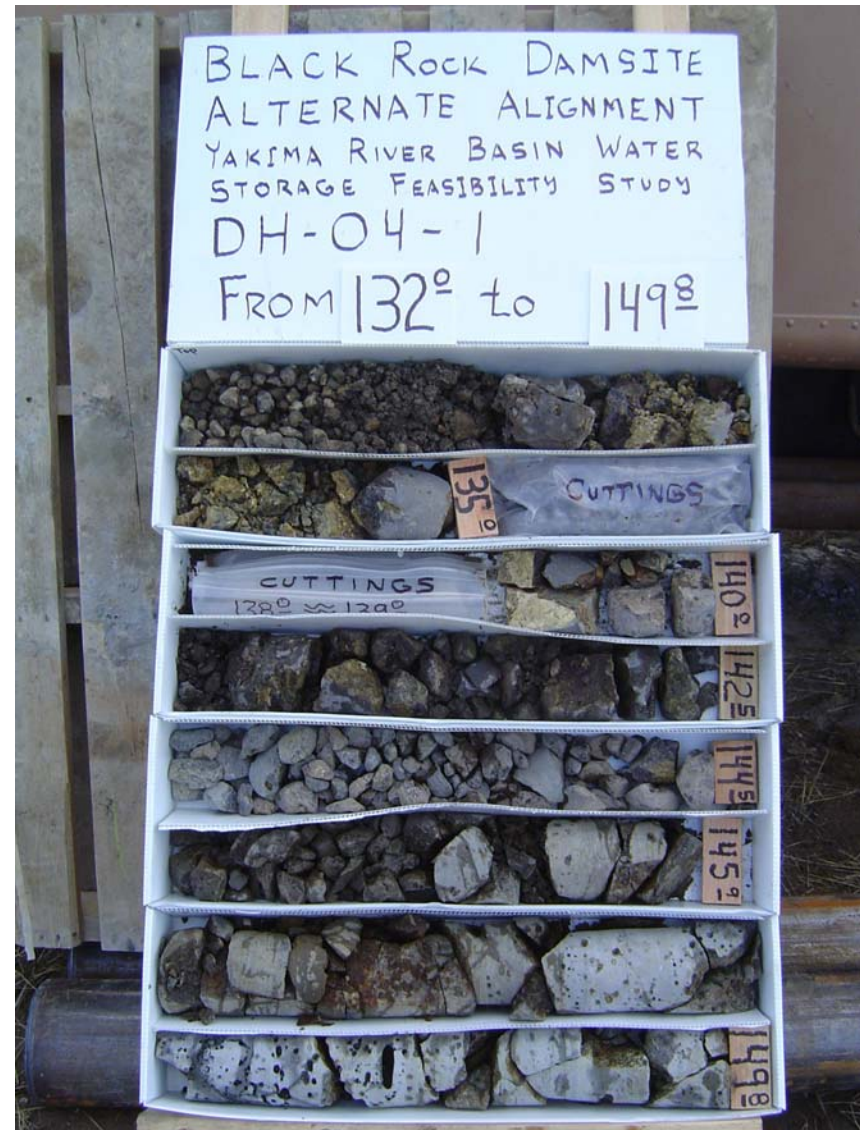 BLACK ROCK DAMSITE
ALTERNATE ALIGNMENT
YAKIMA RIVER BASIN WATER
STORAGE FEASIBILITY STUDY
DH-04-1
FROM 132⁰ to 149⁸
TOP
135¹⁰
CUTTINGS
CUTTINGS
138⁰ ≈ 139⁰
140⁰
142⁵
144⁵
145⁹
149⁸